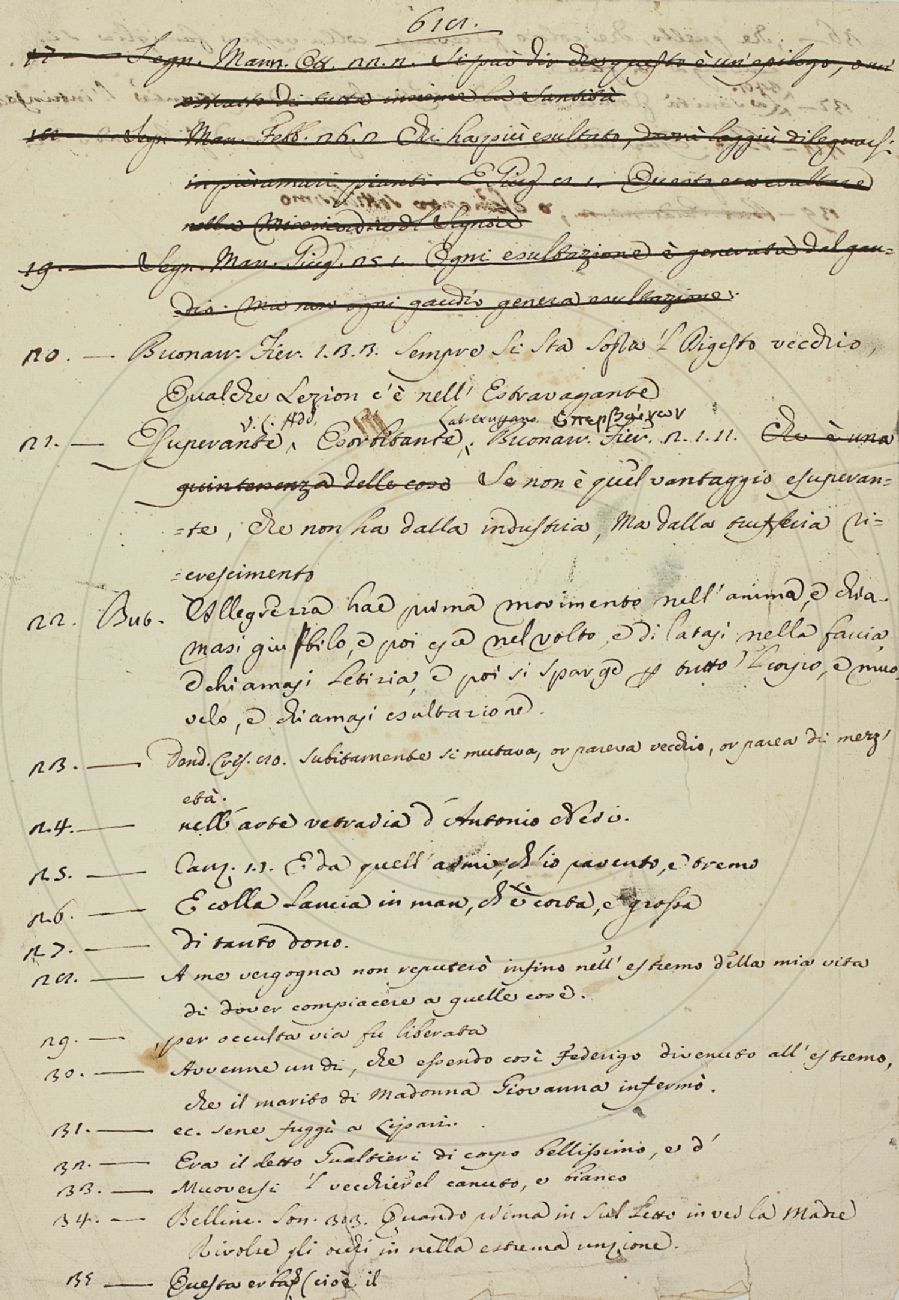 618.
17. — Segn. Mann. Ott. 22. 2. Si può dir che questo è un' epilogo, o un'
estratto di tutta insieme la Santità
18. — Segn. Man. Febb. 26. 2. Chi ha più esultato, dovrà laggiù dileguarsi
in più amari pianti. E Giug. 21. 1. Questo era esultare
nella Misericordia del Signore
19. — Segn. Man. Giug. 25. 1. Ogni esultazione è generata del gau=
dio. Ma non ogni gaudio genera esultazione.
20. — Buonarr. Fier. 1. 3. 3. Sempre si sta sopra 'l Digesto vecchio,
Qualche Lezion c'è nell' Estravagante
V. l. Add. ὑπερβάλλων
21. — Esuperante, Esorbitante, Buonarr. Fier. 2. 1. 11. Che è una
quintessenza delle cose Se non è quel vantaggio esuperan=
=te, che non ha dalla industria, Ma dalla ri=
=crescimento
22. But. Allegrezza hae prima movimento nell' anima, e chia=
masi giubbilo, e poi esce nel volto, e dilatasi nella faccia,
e chiamasi Letizia, e poi si sparge p tutto 'l corpo, e muo
velo, e chiamasi esultazione.
23. — Dond. Cres. 20. Subitamente si mutava, or pareva vecchio, or parea di mezz'
età.
24. — nell' arte vetraria d'Antonio Neri.
25. — Canz. 11. E da quell' armi, ch'io pavento, e tremo
26. — E colla Lancia in man, ch'è corta, e grossa
27. — di tanto dono.
28. — A me vergogna non reputerò infino nell' estremo della mia vita
di dover compiacere a quelle cose.
29. — per occulta via fu liberata
30. — Avvenne un dì, che essendo così Federigo divenuto all' estremo,
che il marito di Madonna Giovanna infermò.
31. — ec. sene fuggì a Lipari.
32. — Era il detto Gualtieri di corpo bellissimo, e d'
33. — Muovesi 'l vecchierel canuto, e bianco
34. — Bellinc. Son. 303. Quando prima in sul Letto in ver la Madre
Rivolse gli occhi in nella estrema unzione.
35 — Questa (cioè il